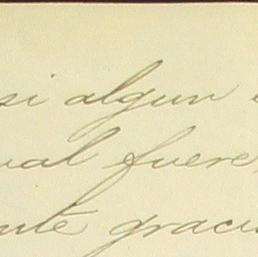 si algun
ual fuere
nte graci